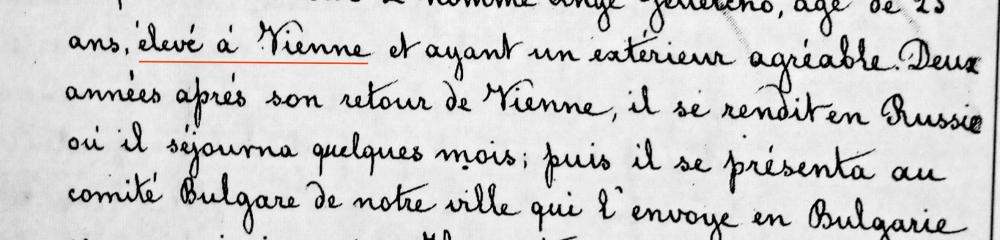 nommé Ange
, âgé de 25
ans, élevé à Vienne et ayant un extérieur agréable. Deux
années aprés son retour de Vienne, il se rendit en Russie
où il séjourna quelques mois; puis il se présenta au
comité Bulgare de notre ville qui l'envoye en Bulgarie